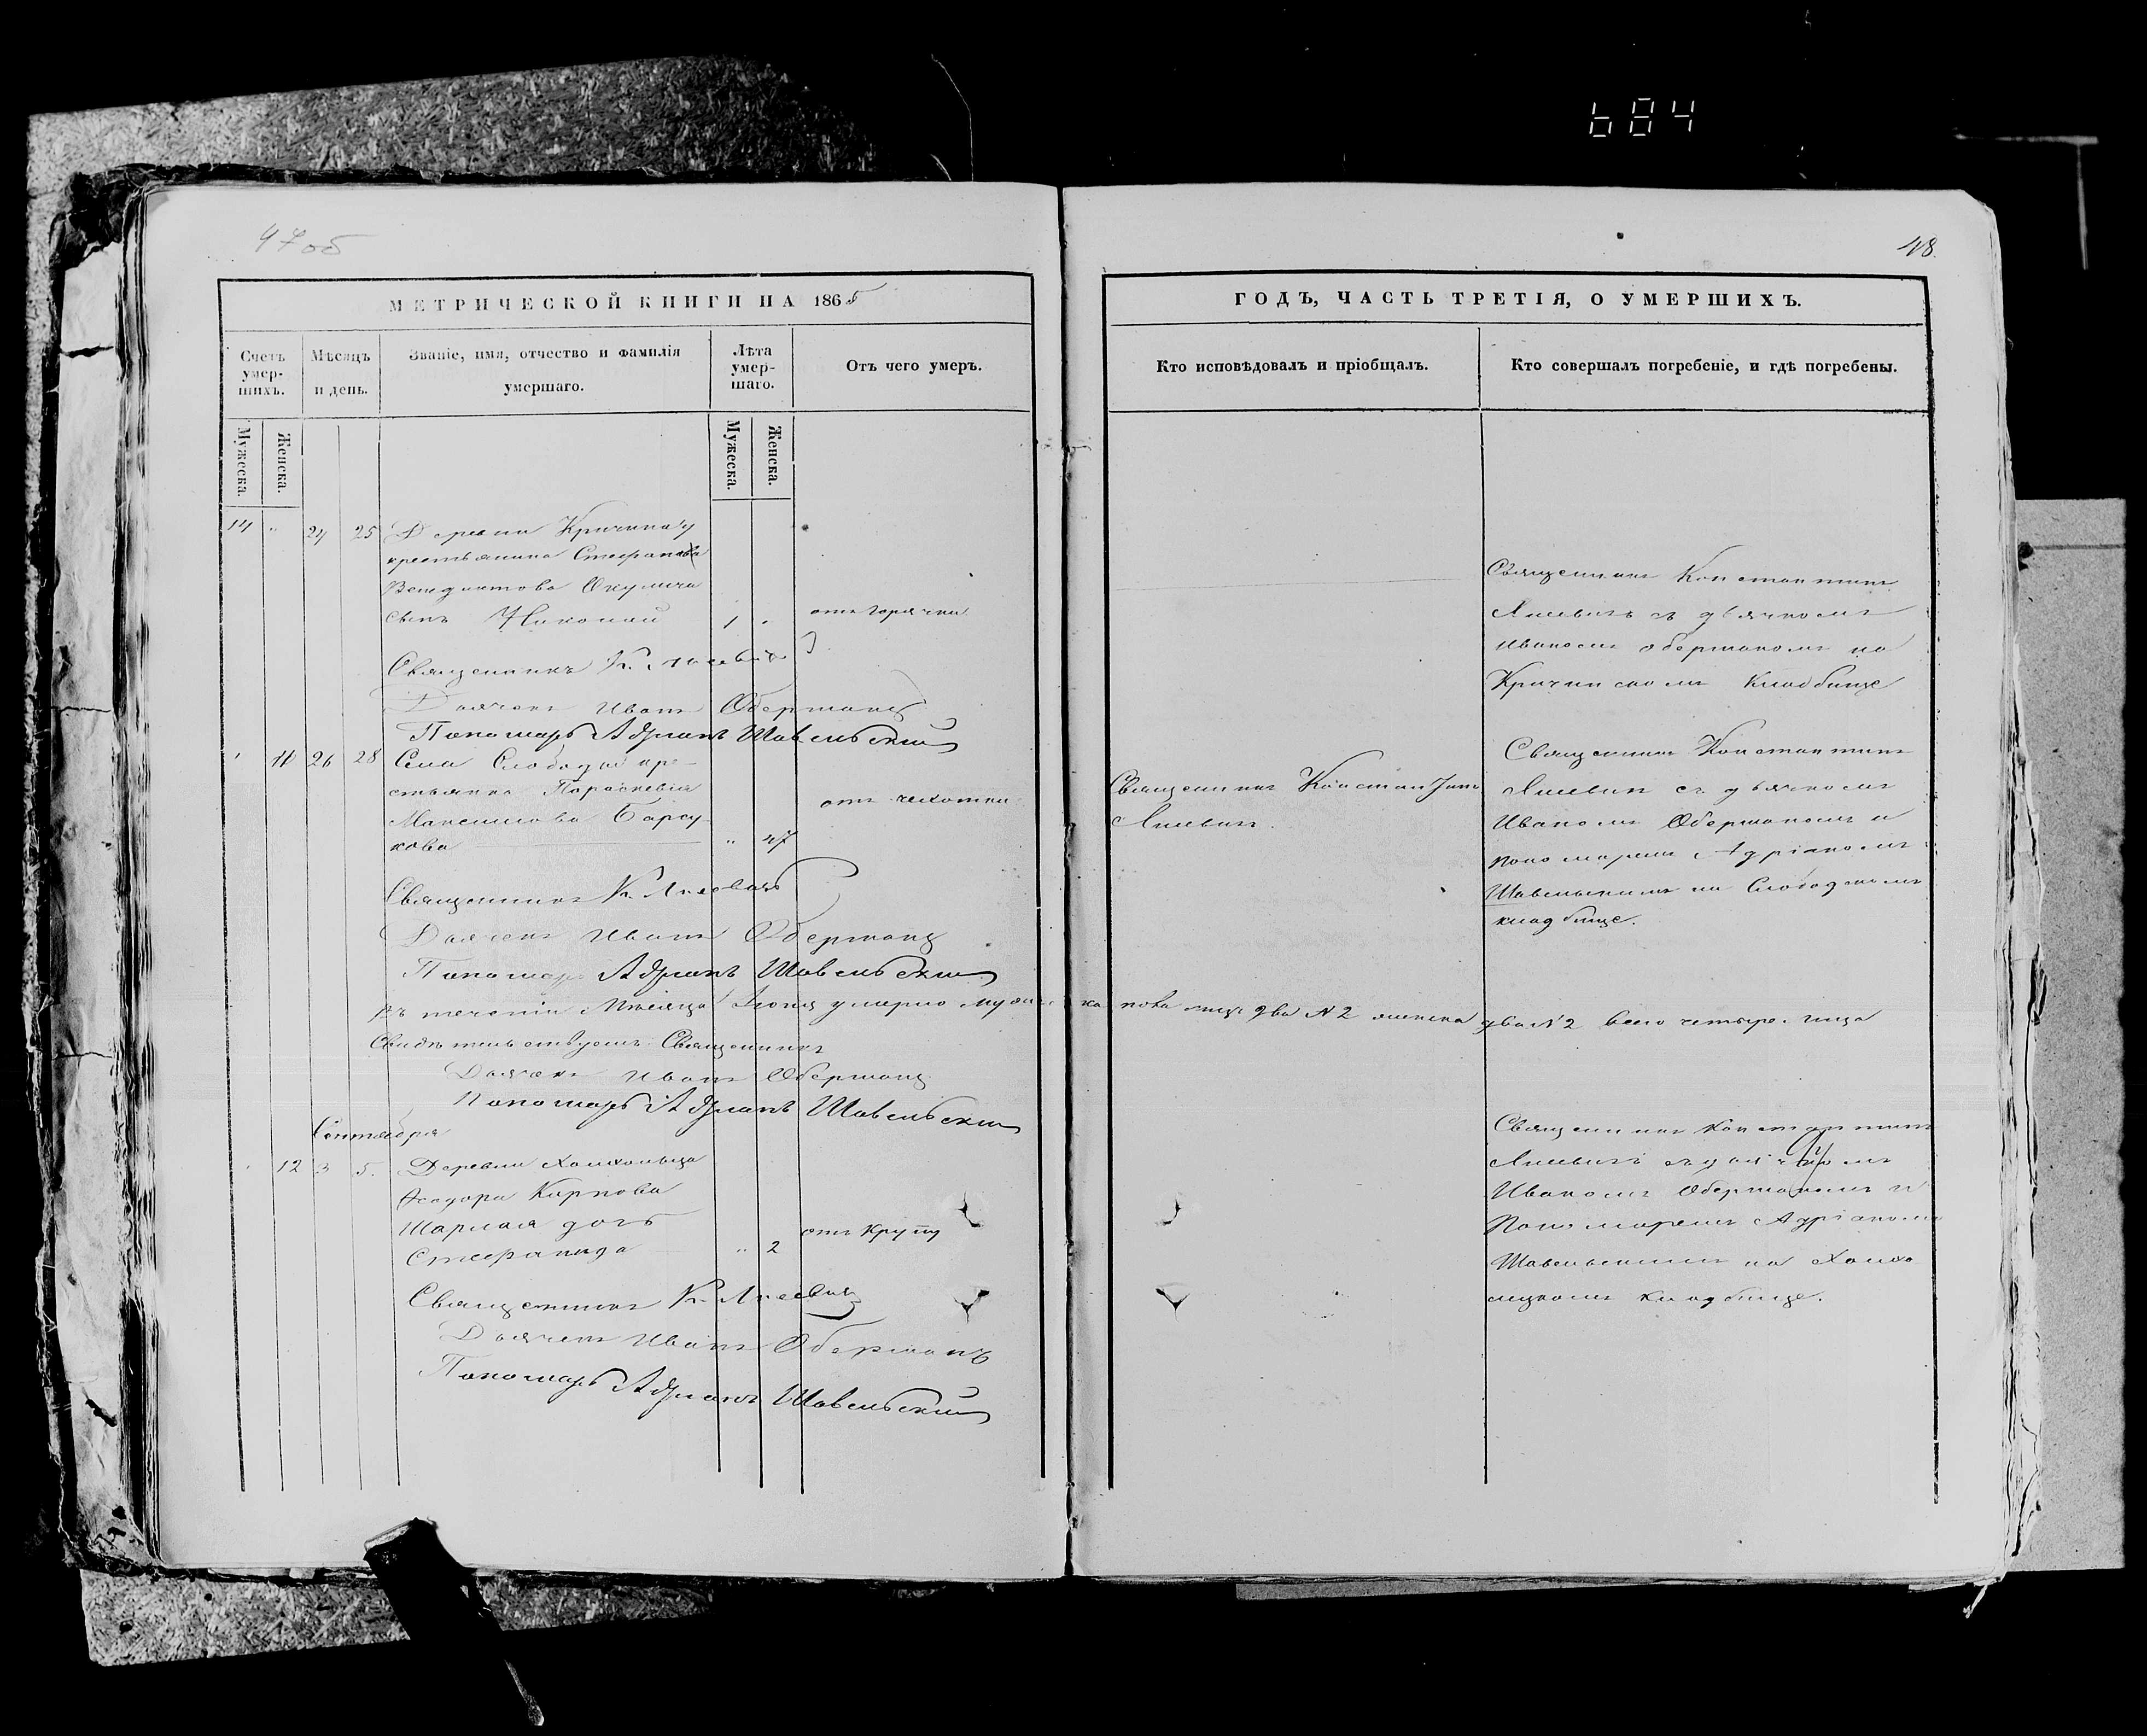 684
47об
48.
МЕТРИЧЕСКОЙ КНИГИ НА 1865
ГОДЪ, ЧАСТЬ ТРЕТІЯ, О УМЕРШИХЪ.
Счетъ умер-шихъ.
Мѣсяцъ и день.
Званіе, имя, отчество и фамилія умершаго.
Лѣта умер-шаго.
Отъ чего умеръ.
Кто исповѣдовалъ и пріобщалъ.
Кто совершалъ погребеніе, и гдѣ погребены.
Мужеска.
Женска.
Мужеска.
Женска.
14 " 24 25 Деревни
крестьянина Стефана
Венедиктова Окулича
сынъ Николай 1 " отъ горячки
Священникъ К.
Дьячекъ Иванъ Оберманъ
Пономарь Адріанъ Шавельскій
Священникъ Константинъ
съ дьячкомъ
Иваномъ Оберманомъ на
кладбище
" 11 26 28 Села Слободки кре-
стьянка Параскевія
Максимова Барсу-
кова " 47
отъ чехотки
Священникъ К.
Дьячекъ Иванъ Оберманъ
Пономарь Адріанъ Шавельскій
Священникъ Константинъ
Священникъ Константинъ
съ дьячкомъ
Иваномъ Оберманомъ и
пономаремъ Адріаномъ
Шавельскимъ на Слободскомъ
кладбище.
Въ теченіи Мѣсяца умерло мужеска пола лицъ два № 2 женска два № 2 всего четыре лица
Свидѣтельствуемъ: Священникъ
Дьячекъ Иванъ Оберманъ
Пономарь Адріанъ Шавельскій
Сентября
" 12 3 5. Деревни
Феодора Карпова
дочь
Стефанида " 2
отъ крупу
Священникъ К.
Дьячекъ Иванъ Оберманъ
Пономарь Адріанъ Шавельскій
Священникъ Константинъ
съ дьячкомъ
Иваномъ Оберманомъ и
Пономаремъ Адріаномъ
Шавельскимъ на
кладбище.